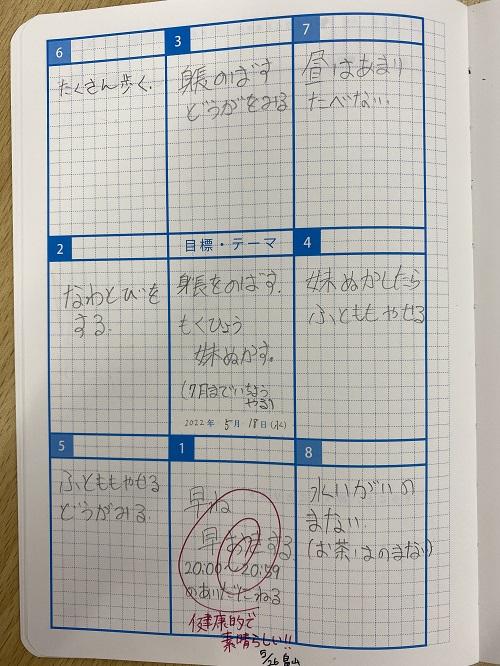 6
たくさん歩く.
3
身長のばす
どうがをみる
7
昼はあまり
たべない.
2
なわとびを
する.
目標・テーマ
身長をのばす.
もくひょう
妹ぬかす.
(7月までいちょう
やる)
2022年 5月 18日(水)
4
妹ぬかしたら
ふとももやせる
5
ふとももやせる
どうがみる.
1
早ね
早おきする.
20:00〜20:59
のあいだにねる
健康的で
素晴らしい!!
5/26 畠山
8
水いがいの
まない.
(お茶はのまない)